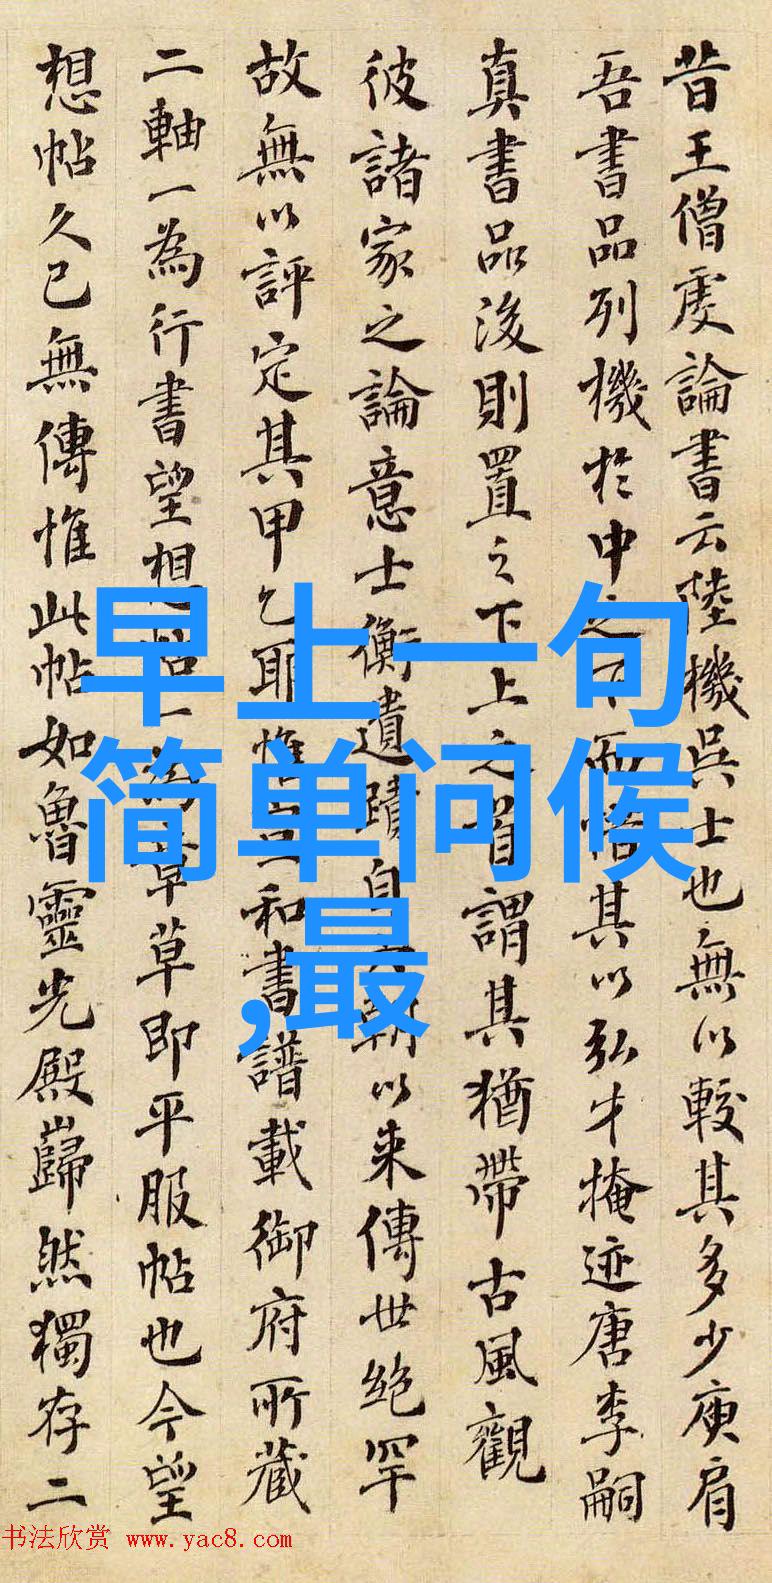 昔王僧虔論書云陸機吳士也無以較其多少庾肩
吾書品列機於中之下而惜其以弘才掩迹唐李嗣
真書品後則置之下上之首謂其猶帶古風觀
彼諸家之論意士衡遺蹟自朝以来傳世絶罕
故無以評定其甲乙耶惟宣和書譜載御府所藏
二軸一為行書望想帖一為章草即平服帖也今望
想帖久已無傳惟此帖如魯靈光殿巋然獨存二
早上一句
简单问候
,最
书法欣赏 www.yac8.com